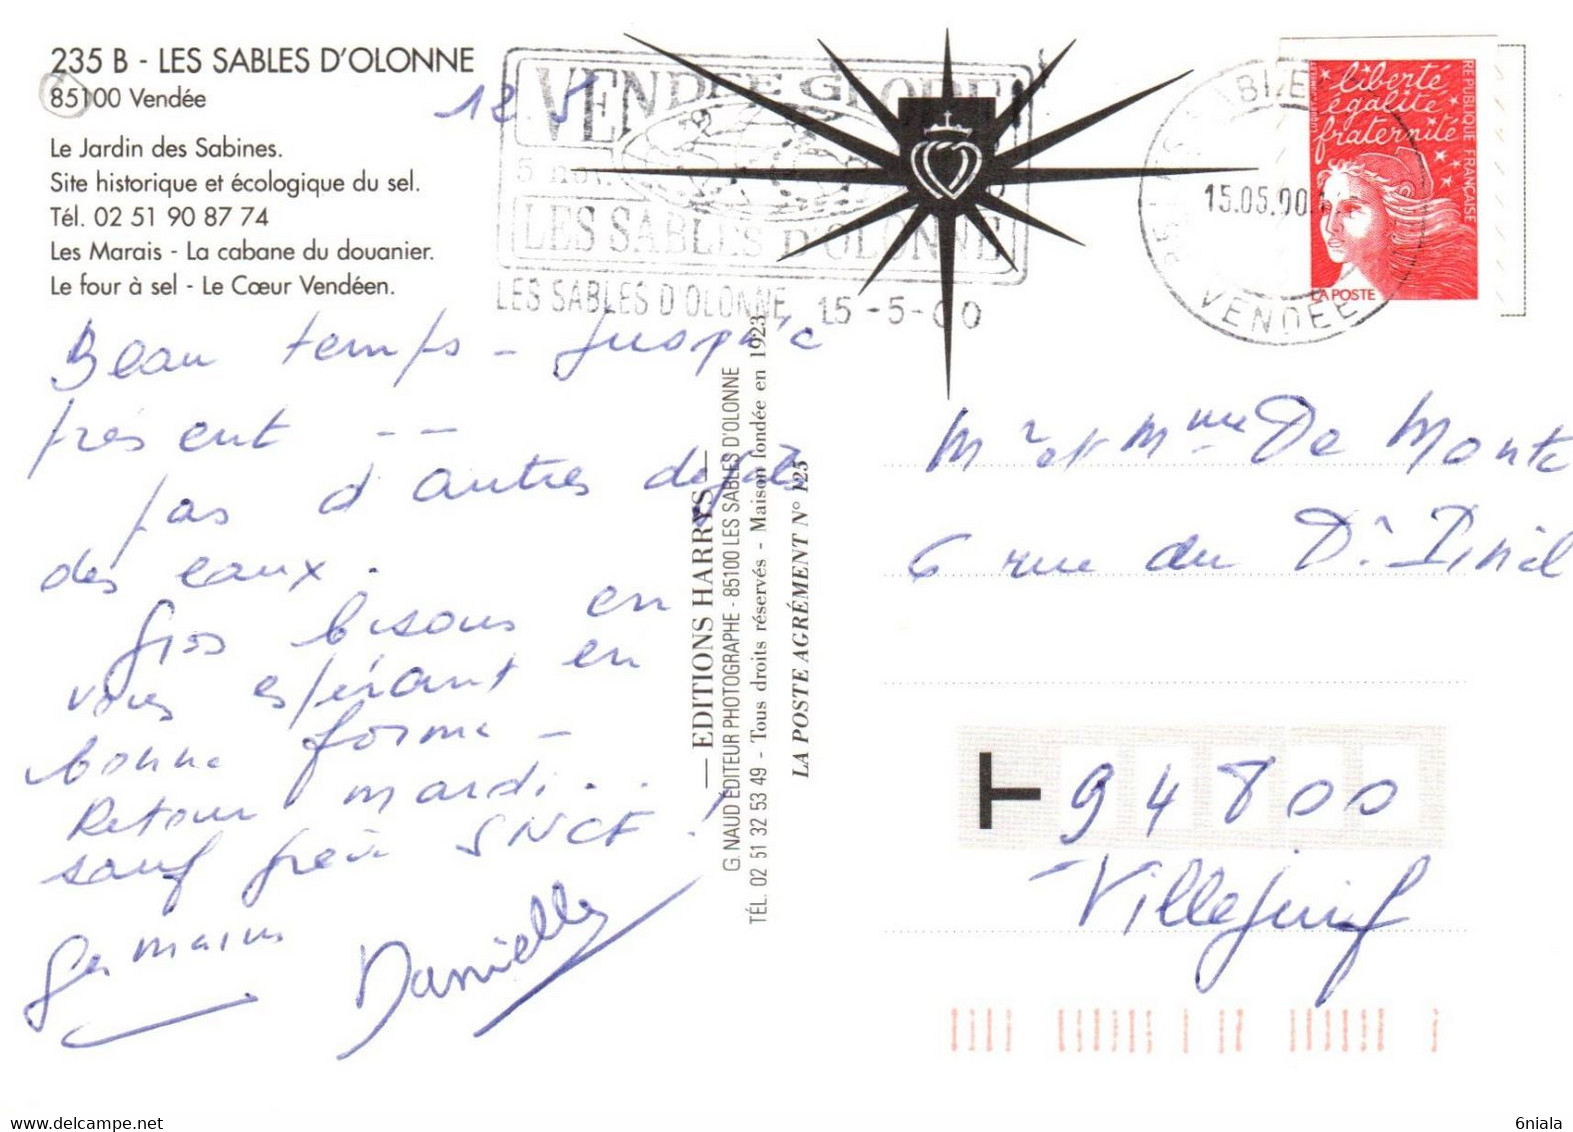 235 B - LES SABLES D'OLONNE
85100 Vendée
Le Jardin des Sabines.
Site historique et écologique du sel.
Tél. 02 51 90 87 74
Les Marais - La cabane du douanier.
Le four à sel - Le Cœur Vendéen.
VENDEE GLOBE
5 nov.
LES SABLES D'OLONNE
LES SABLES D'OLONNE 15-5-00
15.05.00
VENDEE
liberté
égalité
fraternité
REPUBLIQUE FRANÇAISE
LA POSTE
Beau temps - jusqu'à
présent --
pas d'autres dégâts
des eaux.
Gros bisous en
vous espérant en
bonne forme -
Retour mardi..
sauf grève SNCF !
Germaine
Danielle
— EDITIONS HARRYS —
G. NAUD EDITEUR PHOTOGRAPHE - 85100 LES SABLES D'OLONNE
TÉL. 02 51 32 53 49 - Tous droits réservés - Maison fondée en 1923
LA POSTE AGRÉMENT N° 125
Mr et Mme De Monte
6 rue du Dr Pinel
94800
Villejuif
6niala